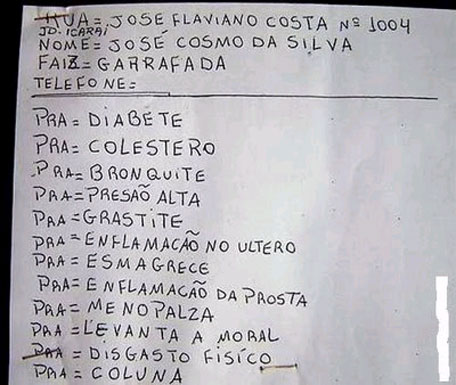 RUA = JOSE FLAVIANO COSTA Nº 1004
JD. ICARAI
NOME = JOSÉ COSMO DA SILVA
FAIZ = GARRAFADA
TELEFONE =
PRA = DIABETE
PRA = COLESTERO
PRA = BRONQUITE
PRA = PRESÃO ALTA
PRA = GRASTITE
PRA = ENFLAMACÃO NO ULTERO
PRA = ESMAGRECE
PRA = ENFLAMACÃO DA PROSTA
PRA = MENOPALZA
PRA = LEVANTA A MORAL
PRA = DISGASTO FISÍCO
PRA = COLUNA